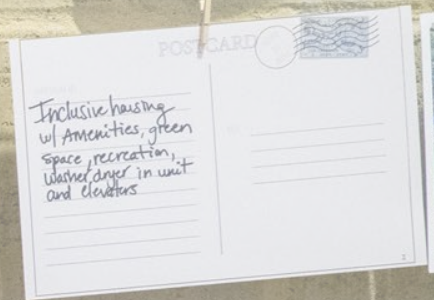 POSTCARD
Inclusive housing
w/ Amenities, green
space, recreation,
washer dryer in unit
and elevators